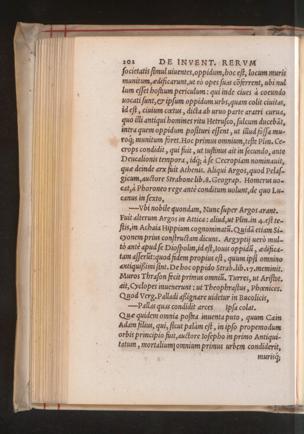 202 DE INVENT. RERVM
societatis simul uiuentes, oppidum, hoc est, locum muris
munitum, ædificarunt, ut eò opes suas cōferrent, ubi nul
lum esset hostium periculum: qui inde ciues à coeundo
uocati sunt, & ipsum oppidum urbs, quam colit ciuitas,
id est, ciuium cœtus, dicta ab uruo parte aratri curua,
quo illi antiqui homines ritu Hetrusco, sulcum ducebāt,
intra quem oppidum posituri essent, ut illud fossa mu-
roq; munitum foret. Hoc primus omnium, teste Plin. Ce
crops condidit, qui fuit, ut iustinus ait in secundo, ante
Deucalionis tempora, idq; à se Cecropiam nominauit,
quæ deinde arx fuit Athenis. Aliqui Argos, quod Pelas-
gicum, auctore Strabone lib. 8. Geograp. Homerus uo-
cat, à Phoroneo rege antè conditum uolunt, de quo Lu-
canus in sexto,
—Vbi nobile quondam, Nunc super Argos arant.
Fuit alterum Argos in Attica: aliud, ut Plin. in 4. est te-
stis, in Achaia Hippium cognominatū. Quidā etiam Si-
cyonem prius constructam dicunt. Aegyptij uerò mul-
tò antè apud se Diospolim, id est, Iouis oppidū, ædifica-
tam asserūt: quod fidem propius est, quum ipsi omnino
antiquissimi sint. De hoc oppido Strab. lib. 17. meminit.
Muros Thrason fecit primus omniū, Turres, ut Aristot.
ait, Cyclopes inuenerunt: ut Theophrastus, Phœnices.
Quod Verg. Palladi assignare uidetur in Bucolicis,
—Pallas quas condidit arces ipsa colat.
Quæ quidem omnia postea inuenta puto, quum Cain
Adam filius, qui, sicut palam est, in ipso propemodum
orbis principio fuit, auctore Iosepho in primo Antiqui-
tatum, mortalium omnium primus urbem condiderit,
murisq;